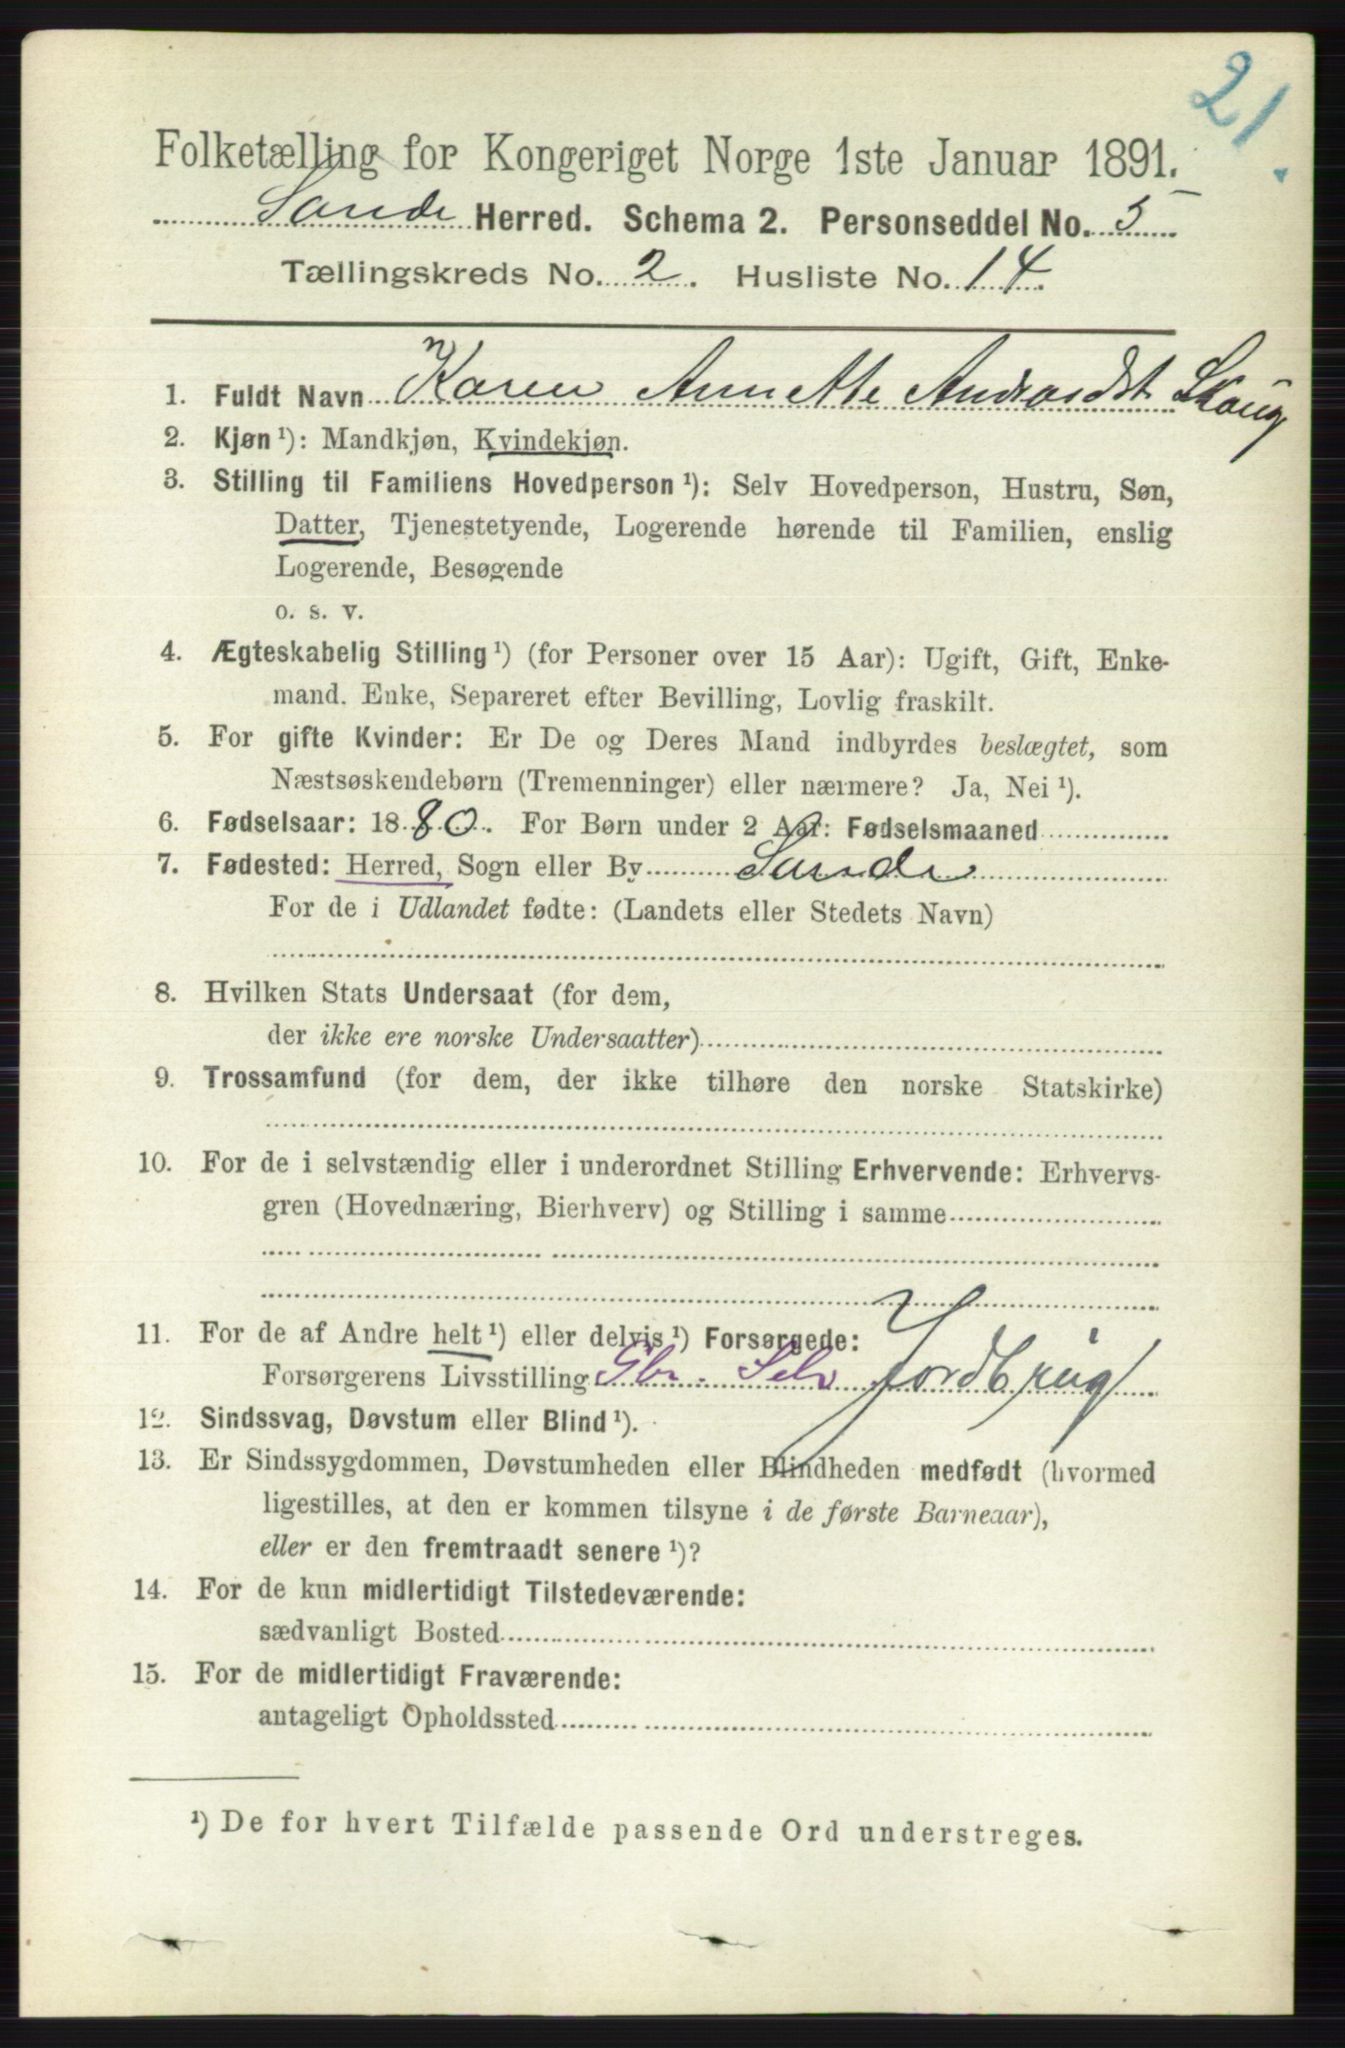 21.
Folketælling for Kongeriget Norge 1ste Januar 1891.
Sande Herred. Schema 2. Personseddel No. 5
Tællingskreds No. 2. Husliste No. 14.
1. Fuldt Navn Karen Annette Skoug
2. Kjøn ¹): Mandkjøn, Kvindekjøn.
3. Stilling til Familiens Hovedperson ¹): Selv Hovedperson, Hustru, Søn,
Datter, Tjenestetyende, Logerende hørende til Familien, enslig
Logerende, Besøgende
o. s. v.
4. Ægteskabelig Stilling ¹) (for Personer over 15 Aar): Ugift, Gift, Enke-
mand. Enke, Separeret efter Bevilling, Lovlig fraskilt.
5. For gifte Kvinder: Er De og Deres Mand indbyrdes beslægtet, som
Næstsøskendebørn (Tremenninger) eller nærmere? Ja, Nei ¹).
6. Fødselsaar: 1880. For Børn under 2 Aar: Fødselsmaaned
7. Fødested: Herred, Sogn eller By Sande
For de i Udlandet fødte: (Landets eller Stedets Navn)
8. Hvilken Stats Undersaat (for dem,
der ikke ere norske Undersaatter)
9. Trossamfund (for dem, der ikke tilhøre den norske Statskirke)
10. For de i selvstændig eller i underordnet Stilling Erhvervende: Erhvervs-
gren (Hovednæring, Bierhverv) og Stilling i samme
11. For de af Andre helt ¹) eller delvis ¹) Forsørgede:
Forsørgerens Livsstilling Gbr. Selv Jordbrug
12. Sindssvag, Døvstum eller Blind ¹).
13. Er Sindssygdommen, Døvstumheden eller Blindheden medfødt (hvormed
ligestilles, at den er kommen tilsyne i de første Barneaar),
eller er den fremtraadt senere ¹)?
14. For de kun midlertidigt Tilstedeværende:
sædvanligt Bosted
15. For de midlertidigt Fraværende:
antageligt Opholdssted
¹) De for hvert Tilfælde passende Ord understreges.